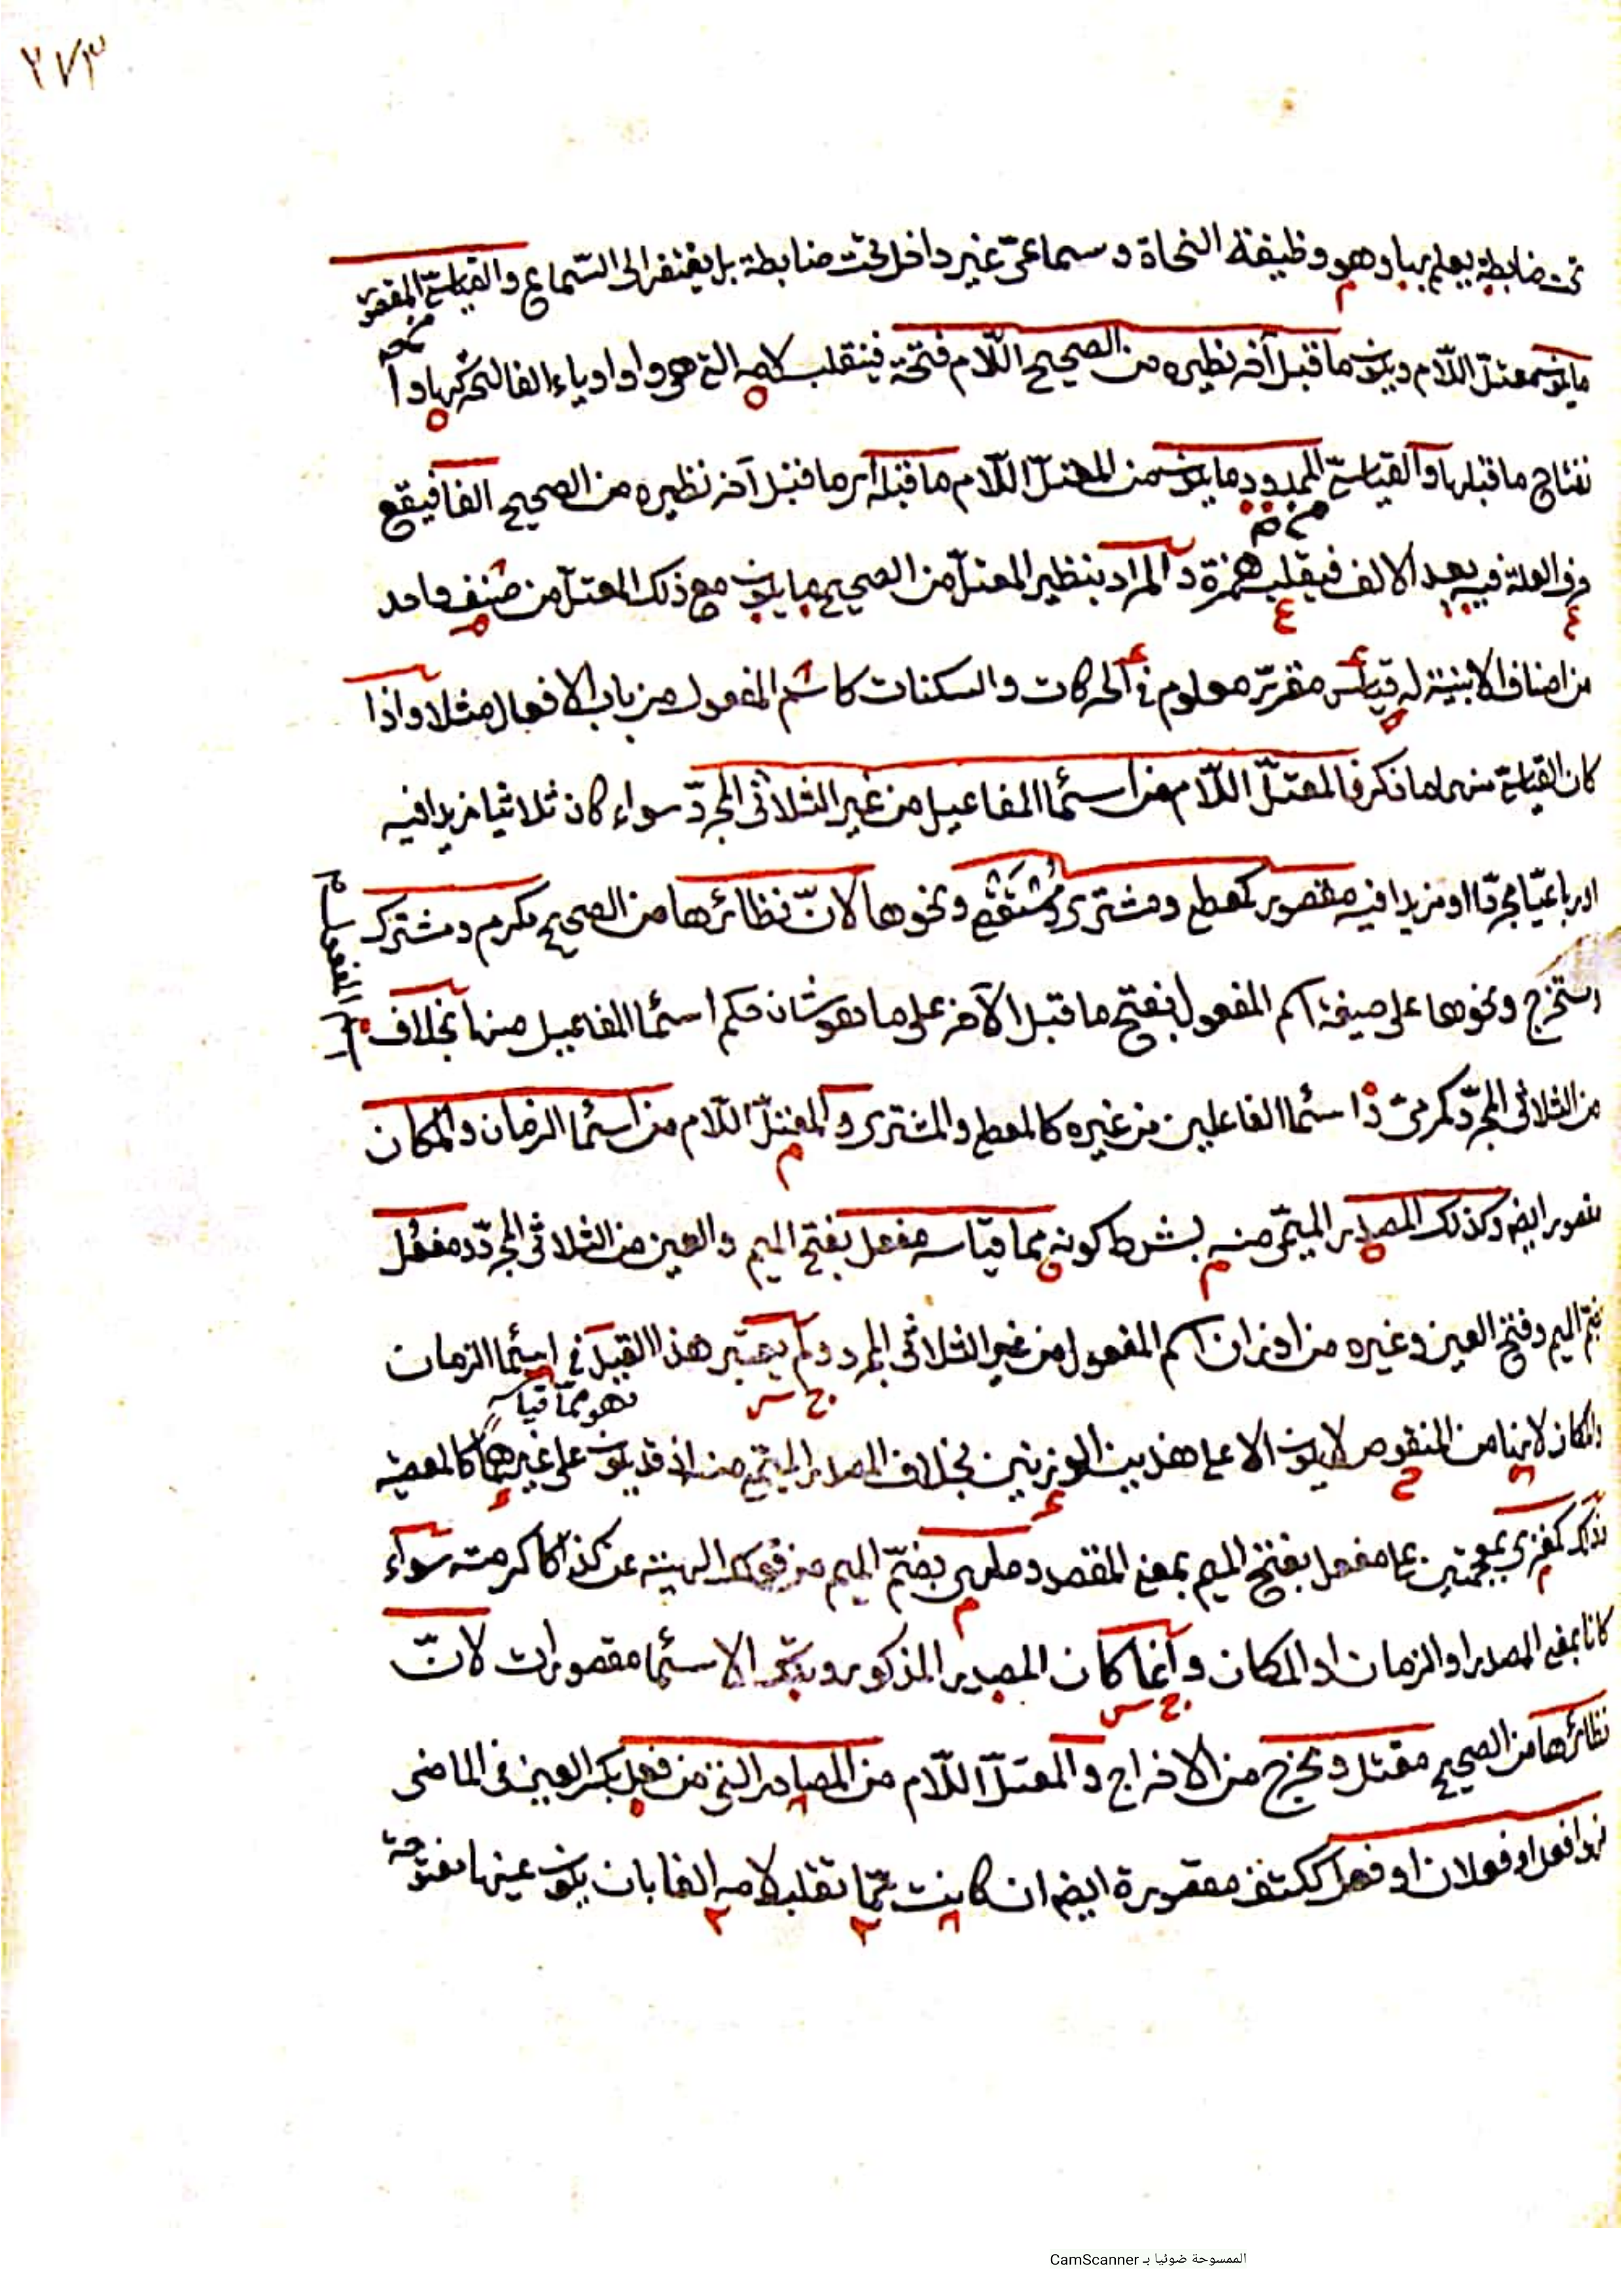 ٢٧٣
تحت ضابطة يعلم بها وهو وظيفة النحاة وسماعىّ غير داخل تحت ضابطة بل يفتقر الى السّماع والقياسىّ المقصور
ما يكون معتلّ اللّام ويكون ما قبل آخر نظيره من الصحيح اللّام فتحة فينقلب لامه التى هى واو او ياء الفا لتحركها وا
نفتاح ما قبلها والقياسىّ الممدود ما يكون من المعتلّ اللّام ما قبله اى ما قبل آخر نظيره من الصحيح الفا فيقع
حرف العلة فيه بعد الالف فيقلب همزة والمراد بنظير المعتلّ من الصحيح ما يكون مع ذلك المعتلّ من صنف واحد
من اصناف الابنية له قياس مقرّر معلوم فى الحركات والسكنات كاسم المفعول من باب الافعال مثلا واذا
كان القياسىّ منهما ما ذكر فالمعتلّ اللّام من اسمآ المفاعيل من غير الثلاثى المجرّد سواء كان ثلاثيا مزيدا فيه
او رباعيّا مجرّدا او مزيدا فيه مقصور كمعطى ومشترى ونحوها لانّ نظائرها من الصحيح مكرم ومشترك
ومستخرج ونحوها على صيغة اسم المفعول بفتح ما قبل الآخر على ما هو شان حكم اسمآ المفاعيل منها بخلاف
من الثلاثى المجرّد كمرمىّ واسمآ الفاعلين من غيره كالمعطى والمشترى والمعتلّ اللّام من اسمآ الزمان والمكان
مقصور ايضا وكذلك المصدر الميمّى منه بشرط كونه مما قياسه مفعل بفتح الميم والعين من الثلاثى المجرّد ومفعل
بضم الميم وفتح العين وغيره من اوزان اسم المفعول من غير الثلاثى المجرد ولم يعتبر هذا القيد فى اسمآ الزمان
فهو ممّا قياسه
والمكان لانها من المنقوص لا يكون الا على هذين الوزنين بخلاف المصدر الميمى منه اذ قد يكون على غيرهما كالمعصية
وذلك كمغزى بمعجمتين على مفعل بفتح الميم بمعنى المقصد وملهى بضمّ الميم من قولك الهيته عن كذا كاكرمته سوآء
كانا بمعنى المصدر او الزمان او المكان وانّما كان المصدر المذكور وتلك الاسمآ مقصورات لانّ
نظائرها من الصحيح مقتل ومخرج من الاخراج والمعتلّ اللّام من المصادر التى من فعل بكسر العين فى الماضى
فهو افعل او فعلان او فعل ككتف مقصورة ايضا ان كانت ممّا تقلب لامه الفا بان يكون عينها مفتوحة
الممسوحة ضوئيا بـ CamScanner